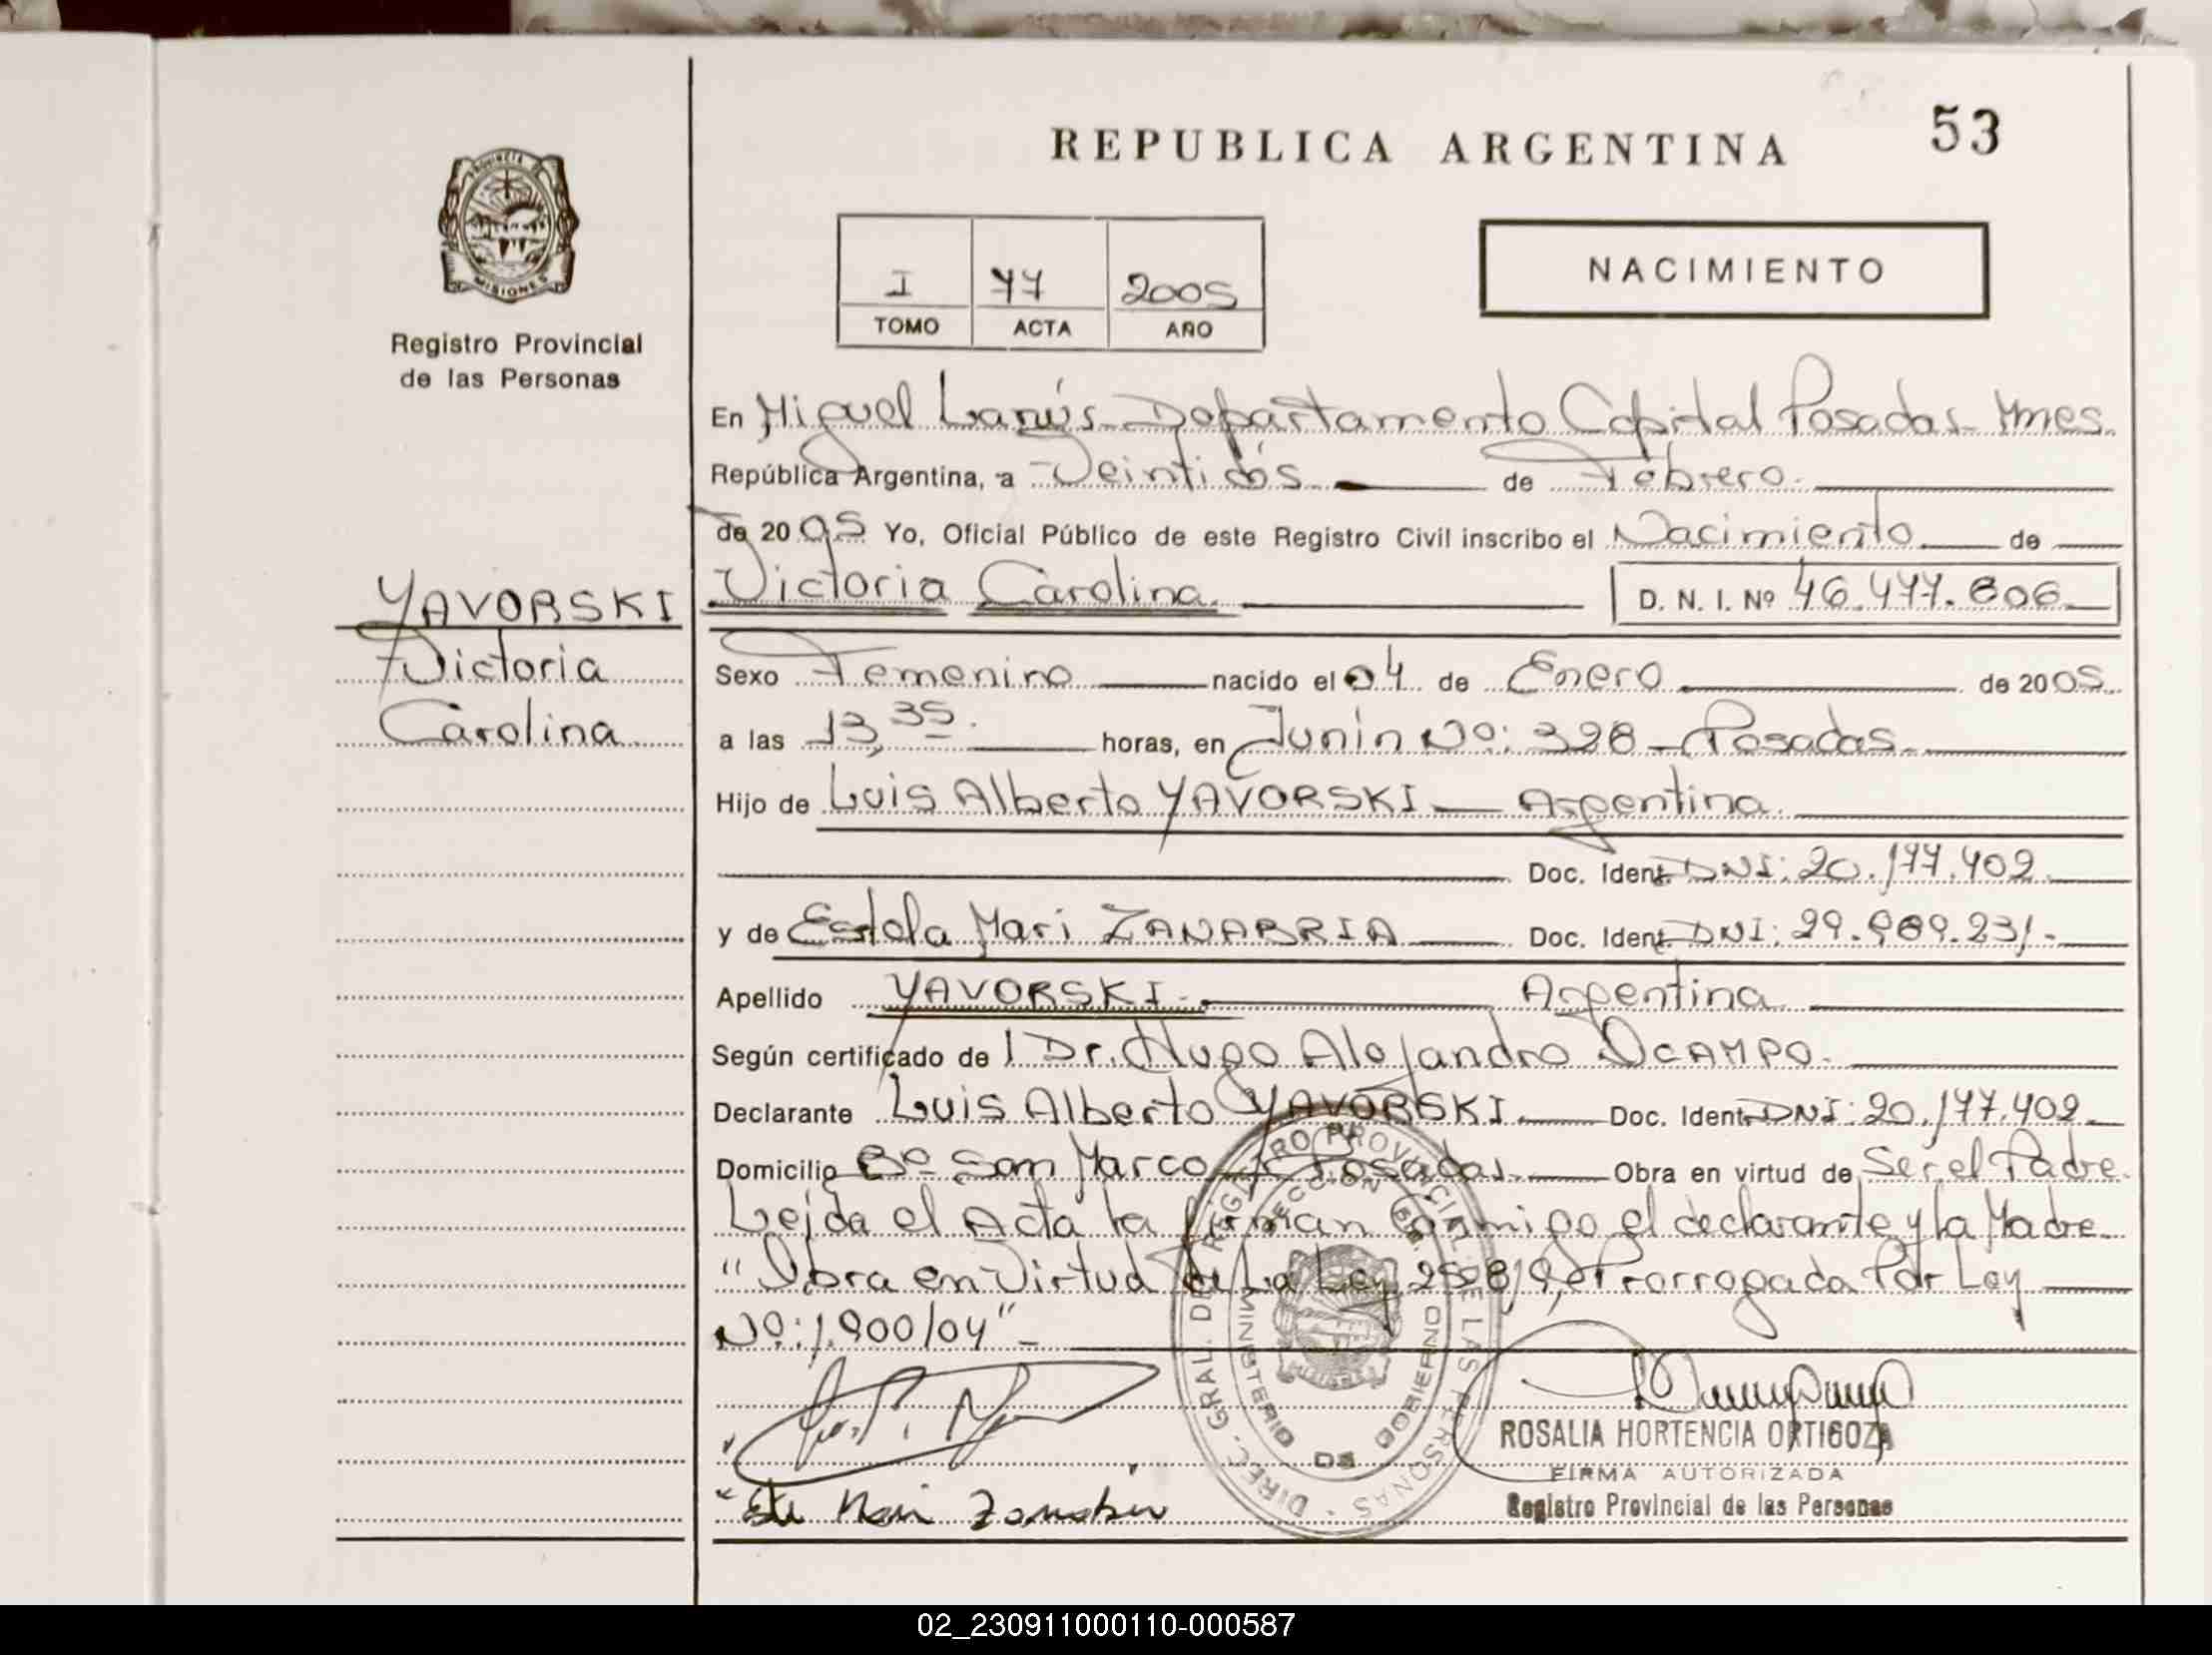 REPUBLICA ARGENTINA
53
PROVINCIA DE MISIONES
Registro Provincial
de las Personas
I 77 2005
TOMO ACTA AÑO
NACIMIENTO
En Miguel Lanús - Departamento Capital Posadas - Mnes.
República Argentina, a Veintidós de Febrero.
de 2005 Yo, Oficial Público de este Registro Civil inscribo el Nacimiento de
Victoria Carolina. D. N. I. Nº 46.477.806
YAVORSKI
Victoria
Carolina
Sexo Femenino nacido el 04 de Enero de 2005
a las 13,35. horas, en Junín Nº: 328 - Posadas.
Hijo de Luis Alberto YAVORSKI - Argentina.
Doc. Ident. DNI: 20.177.402
y de Estela Mari ZANABRIA Doc. Ident. DNI: 29.989.231.-
Apellido YAVORSKI. Argentina
Según certificado de Dr. Hugo Alejandro OCAMPO.
Declarante Luis Alberto YAVORSKI. Doc. Ident. DNI: 20.177.402
Domicilio Bº San Marco - Posadas. Obra en virtud de Ser el Padre.
Leída el Acta la firman conmigo el declarante y la Madre.
"Obra en Virtud de La Ley 25.819, Prorrogada Por Ley
Nº: 1.900/04"-
DIREC. GRAL. DE REGISTRO PROVINCIAL DE LAS PERSONAS
MINISTERIO DE GOBIERNO
ROSALIA HORTENCIA ORTIGOZA
FIRMA AUTORIZADA
Registro Provincial de las Personas
02_230911000110-000587